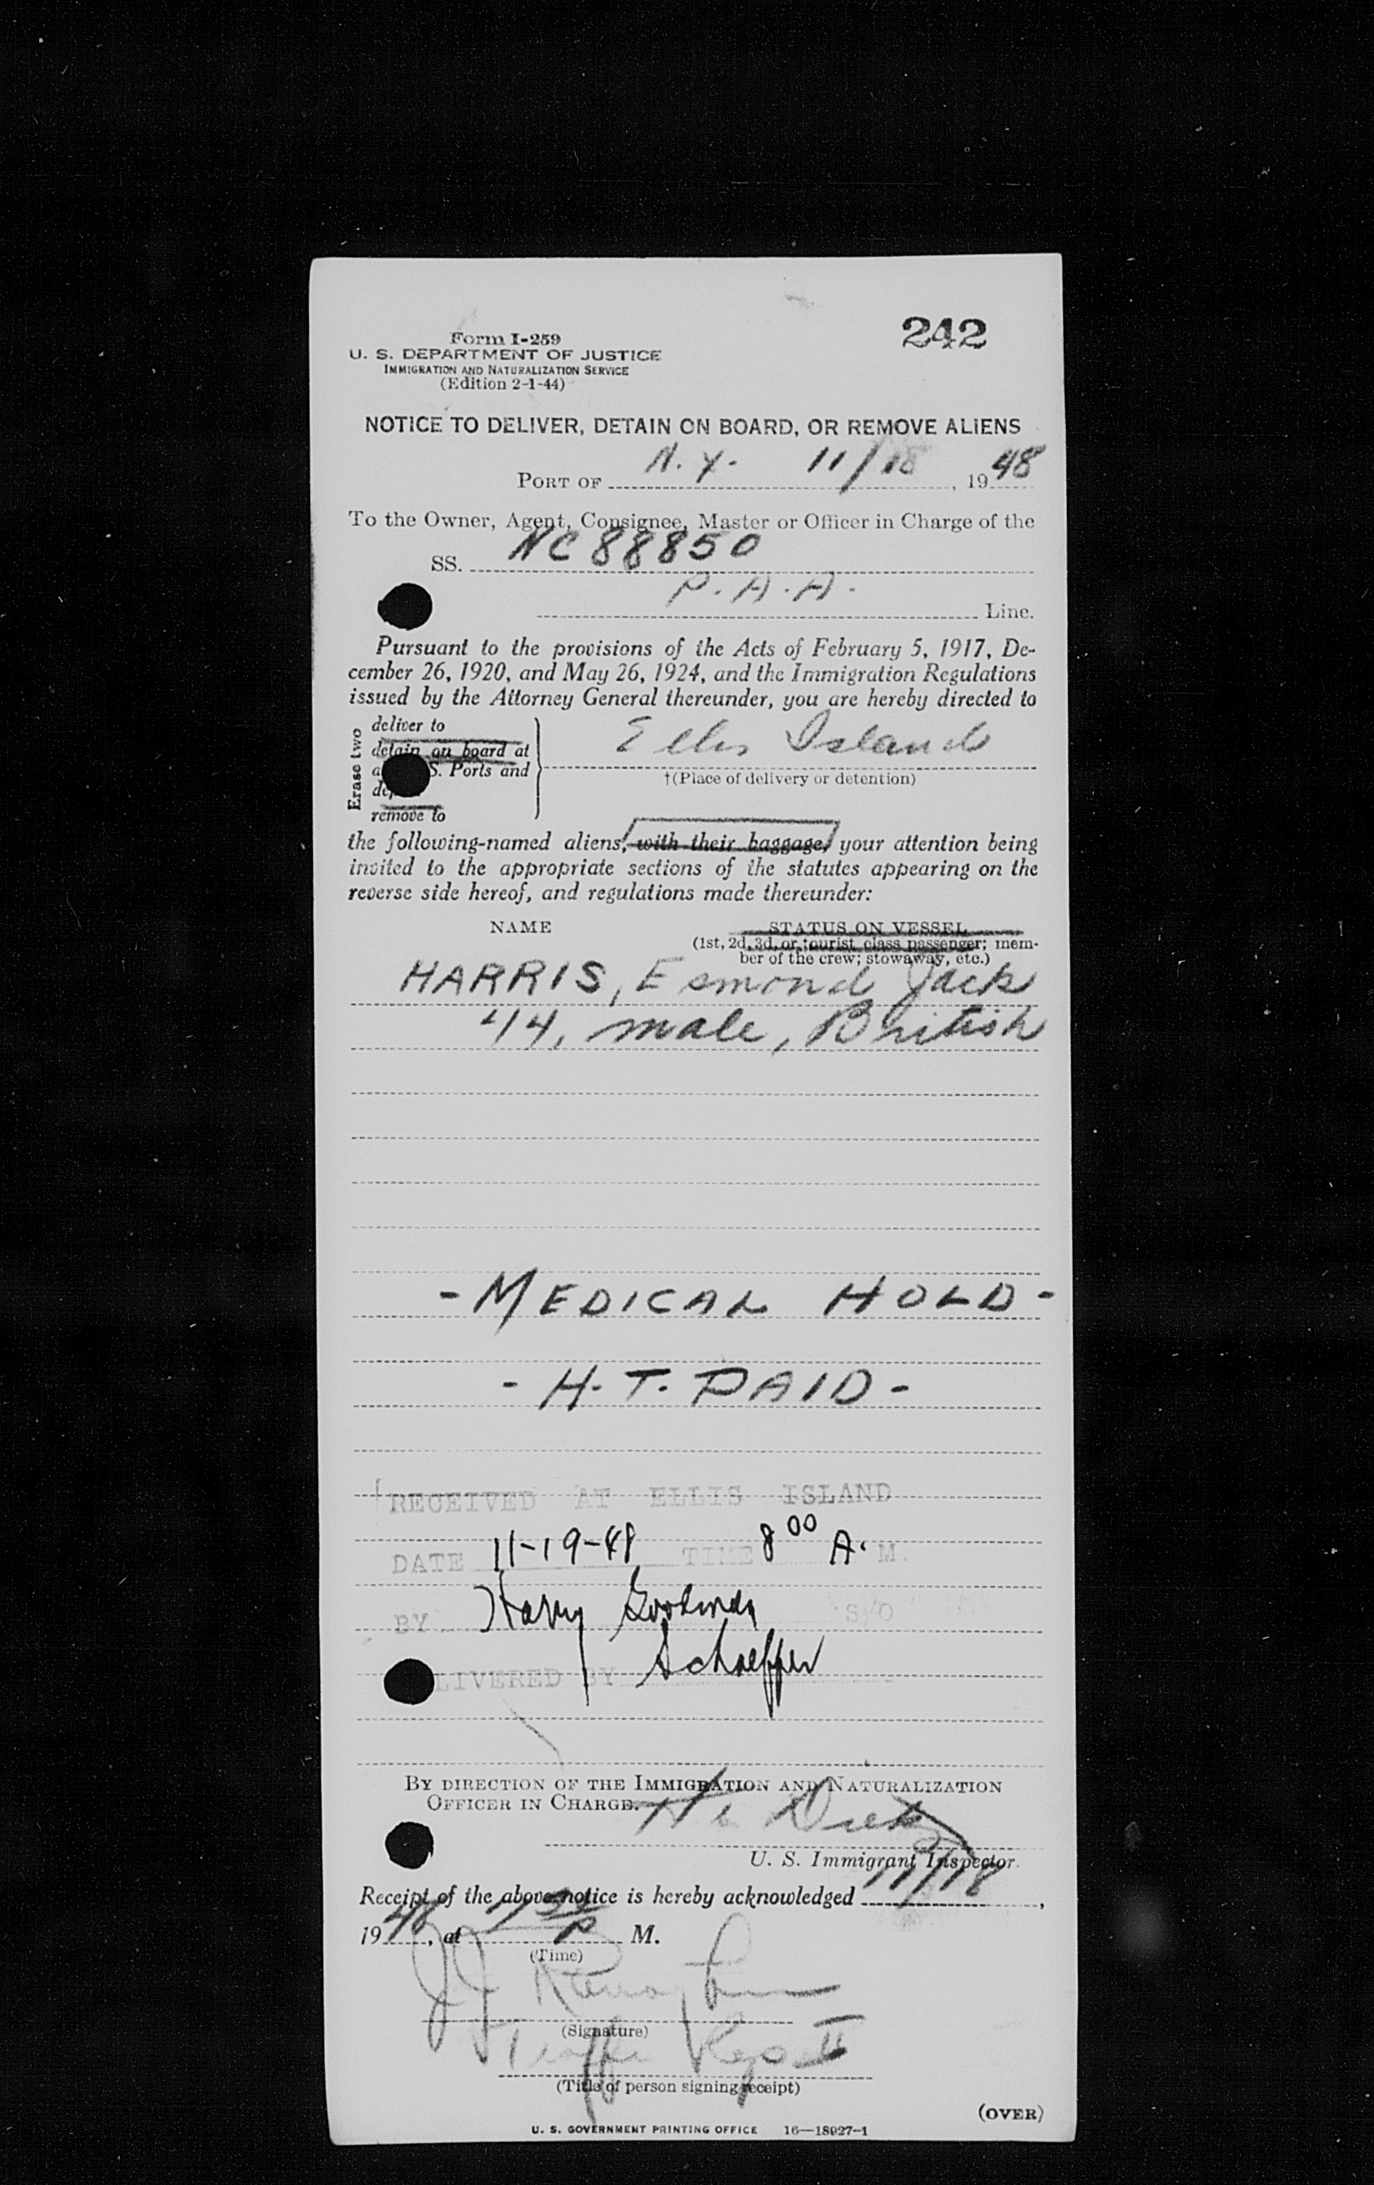 242
Form I-259
U. S. DEPARTMENT OF JUSTICE
IMMIGRATION AND NATURALIZATION SERVICE
(Edition 2-1-44)
NOTICE TO DELIVER, DETAIN ON BOARD, OR REMOVE ALIENS
PORT OF N.Y. 11/18, 1948
To the Owner, Agent, Consignee, Master or Officer in Charge of the
SS. NC 88850
P.A.A. Line.
Pursuant to the provisions of the Acts of February 5, 1917, De-
cember 26, 1920, and May 26, 1924, and the Immigration Regulations
issued by the Attorney General thereunder, you are hereby directed to
Erase two
deliver to
detain on board at
S. Ports and
remove to
Ellis Island
†(Place of delivery or detention)
the following-named aliens, with their baggage, your attention being
invited to the appropriate sections of the statutes appearing on the
reverse side hereof, and regulations made thereunder:
NAME STATUS ON VESSEL
(1st, 2d, 3d, or tourist class passenger; mem-
ber of the crew; stowaway, etc.)
HARRIS, Esmond Jack
44, male, British
- MEDICAL HOLD -
- H.T. PAID -
RECEIVED AT ELLIS ISLAND
DATE 11-19-48 TIME 8 00 A. M.
BY Harry S/O
LIVERED BY Schaeffer
BY DIRECTION OF THE IMMIGRATION AND NATURALIZATION
OFFICER IN CHARGE.
U. S. Immigrant Inspector.
Receipt of the above notice is hereby acknowledged 11/18,
1948, at P M.
(Time)
(Signature)
(Title of person signing receipt)
(OVER)
U. S. GOVERNMENT PRINTING OFFICE 16—18927-1